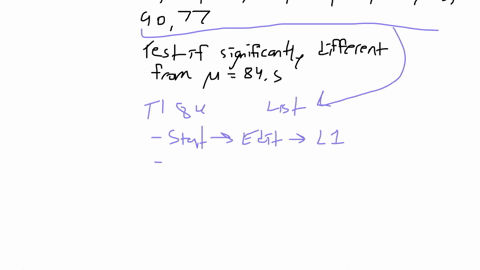 90, 77
Test if significantly different
from μ = 84.5
TI 84 List
- Stat → Edit → L1
-